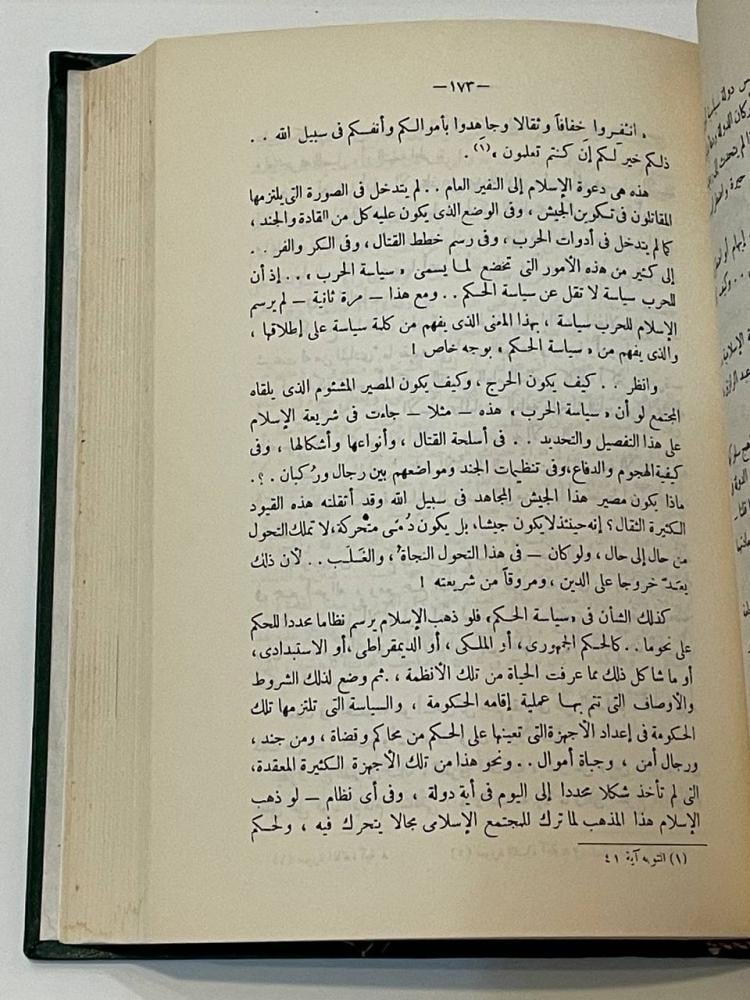 —١٧٣—
« انفروا خفافاً وثقالا وجاهدوا بأموالكم وأنفسكم فى سبيل الله . .
ذلكم خير لكم إن كنتم تعلمون »(١) .
هذه هى دعوة الإسلام إلى النفير العام . . لم يتدخل فى الصورة التى يلتزمها
المقاتلون فى تكوين الجيش ، وفى الوضع الذى يكون عليه كل من القادة والجند ،
كما لم يتدخل فى أدوات الحرب ، وفى رسم خطط القتال ، وفى الكر والفر . .
إلى كثير من هذه الأمور التى تخضع لما يسمى « سياسة الحرب » . . إذ أن
للحرب سياسة لا تقل عن سياسة الحكم . . ومع هذا — مرة ثانية — لم يرسم
الإسلام للحرب سياسة ، بهذا المعنى الذى يفهم من كلمة سياسة على إطلاقها ،
والذى يفهم من « سياسة الحكم » بوجه خاص !
وانظر . . كيف يكون الحرج ، وكيف يكون المصير المشئوم الذى يلقاه
المجتمع لو أن « سياسة الحرب » هذه — مثلا — جاءت فى شريعة الإسلام
على هذا التفصيل والتحديد . . فى أسلحة القتال ، وأنواعها وأشكالها ، وفى
كيفية الهجوم والدفاع ، وفى تنظيمات الجند ومواضعهم بين رجال وركبان . ؟ .
ماذا يكون مصير هذا الجيش المجاهد فى سبيل الله وقد أثقلته هذه القيود
الكثيرة الثقال ؟ إنه حينئذ لا يكون جيشا، بل يكون دُمًى متحركة، لا تملك التحول
من حال إلى حال ، ولو كان — فى هذا التحول النجاة ، والغَلَب . . لأن ذلك
يعدّ خروجا على الدين ، ومروقاً من شريعته !
كذلك الشأن فى « سياسة الحكم » فلو ذهب الإسلام يرسم نظاما محددا للحكم
على نحو ما . . كالحكم الجمهورى ، أو الملكى ، أو الديمقراطى ، أو الاستبدادى ،
أو ما شاكل ذلك مما عرفت الحياة من تلك الأنظمة ، . ثم وضع لذلك الشروط
والأوصاف التى تتم بها عملية إقامه الحكومة ، والسياسة التى تلتزمها تلك
الحكومة فى إعداد الأجهزة التى تعينها على الحكم من محاكم وقضاة ، ومن جند ،
ورجال أمن ، وجباة أموال . . ونحو هذا من تلك الأجهزة الكثيرة المعقدة ،
التى لم تأخذ شكلا محددا إلى اليوم فى أية دولة ، وفى أى نظام — لو ذهب
الإسلام هذا المذهب لما ترك للمجتمع الإسلامى مجالا يتحرك فيه ، ولحكم
(١) التوبه آية ٤١